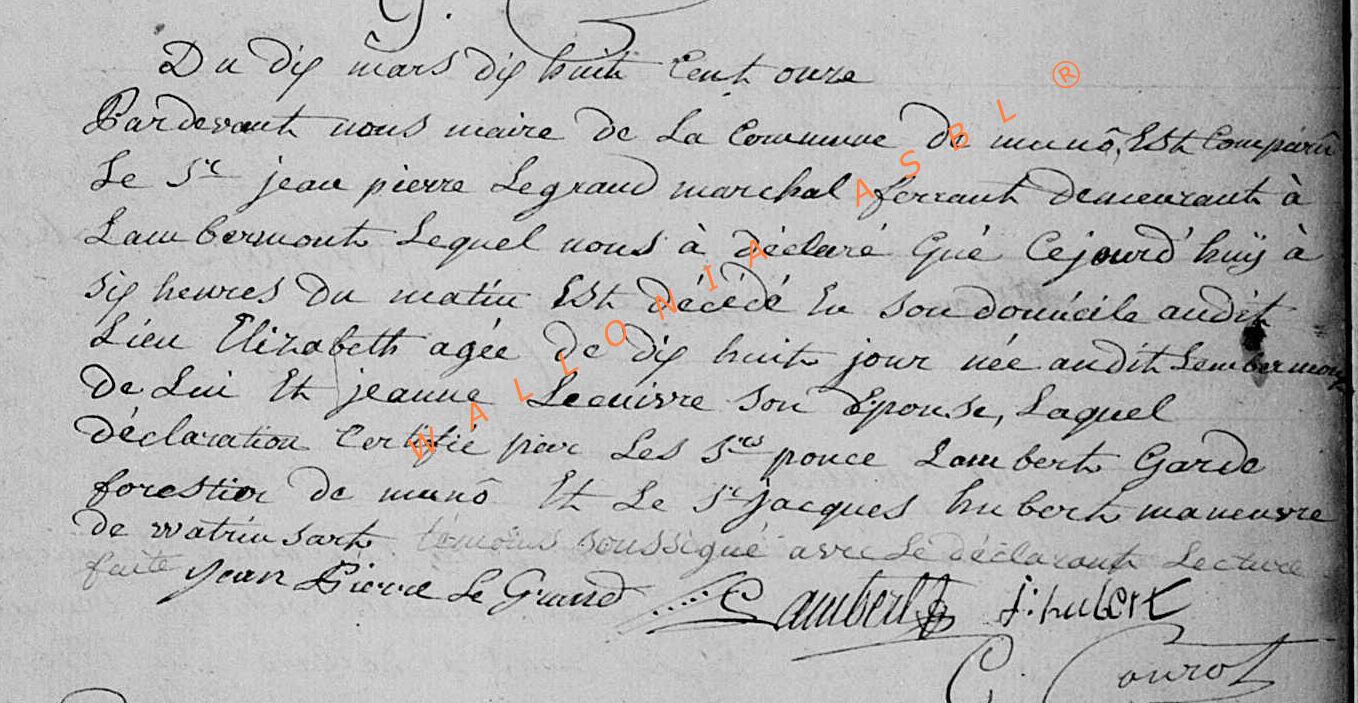 Du dix mars dix huit Cent onze
Pardevant nous maire de La Commune de munô, Est Comparu
Le Sr jean pierre Legrand marchal ferrant demeurant à
Lambermont Lequel nous à déclaré que Cejourd'huÿ à
six heures du matin Est décédé En son domicile audit
Lieu Elizabeth agée de dix huit jour née audit Lambermont
de Lui Et jeanne Lecuivre son Epouse, Laquel
déclaration Certifié par Les Srs ponce Lambert Garde
forestier de munô Et Le Sr jacques hubert maneuvre
de watrinsart témoins soussigné avec Le déclarant Lecture
faite Jean Pierre Le Grand Lambert J:hubert
C. Gourot
WALLONIA ASBL ®